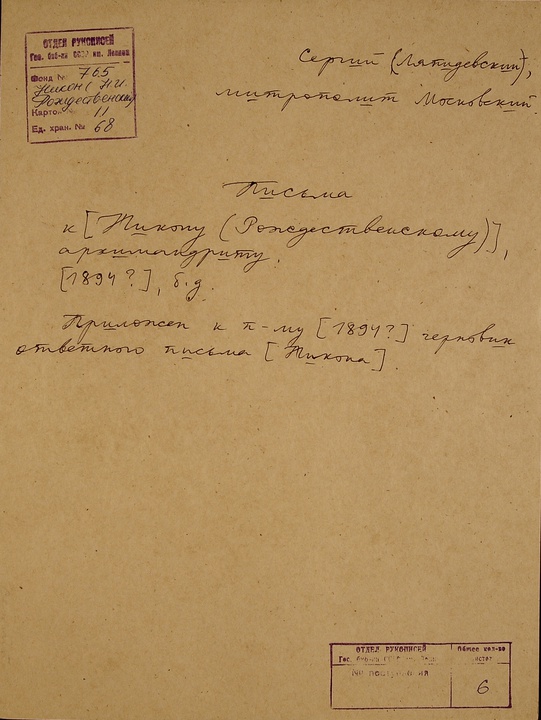 ОТДЕЛ РУКОПИСЕЙ
Гос. биб-ки СССР им. Ленина
Фонд № 765
Никон (Н.И.
Рождественский)
Картон 11
Ед. хран. № 68
Сергий (Ляпидевский),
митрополит Московский.
Письма
к [Никону (Рождественскому)],
архимандриту.
[1894?], б.д.
Приложен к п-му [1894?] черновик
ответного письма [Никона].
ОТДЕЛ РУКОПИСЕЙ
Гос.
Общее кол-во
листов
6